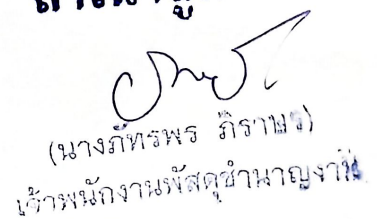 (นางภัทรพร ภิราษร)
เจ้าพนักงานพัสดุชำนาญงาน